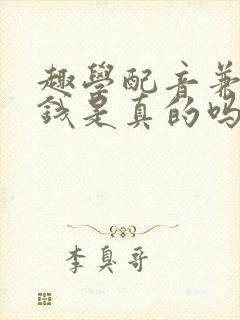 趣學配音兼
錢是真的嗎
李臭哥